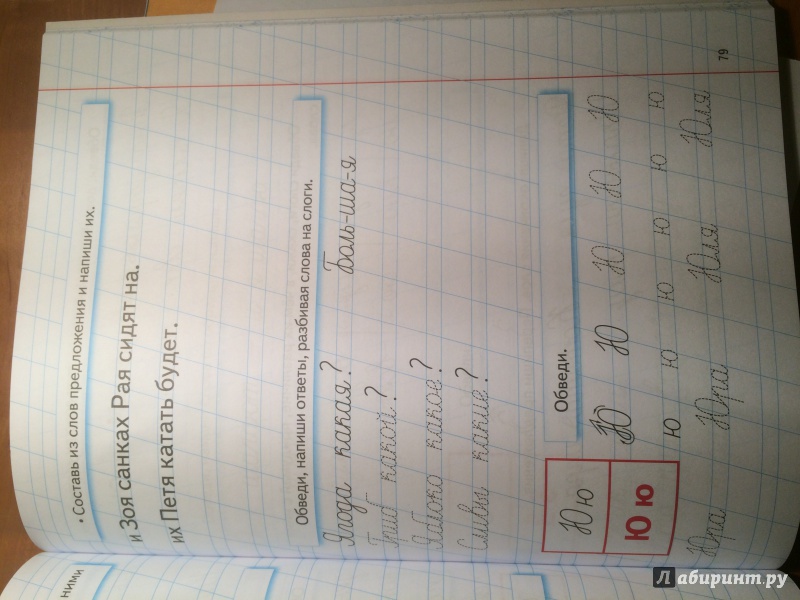 • Составь из слов предложения и напиши их.
и Зоя санках Рая сидят на.
их Петя катать будет.
Обведи, напиши ответы, разбивая слова на слоги.
Ягода какая? Боль-ша-я
Гриб какой?
Яблоко какое?
Сливы какие?
Обведи.
Ю ю Ю Ю Ю Ю Ю
Ю ю ю ю ю ю ю ю
Юра Юра Юля Юля
79
ними
Лабиринт.ру